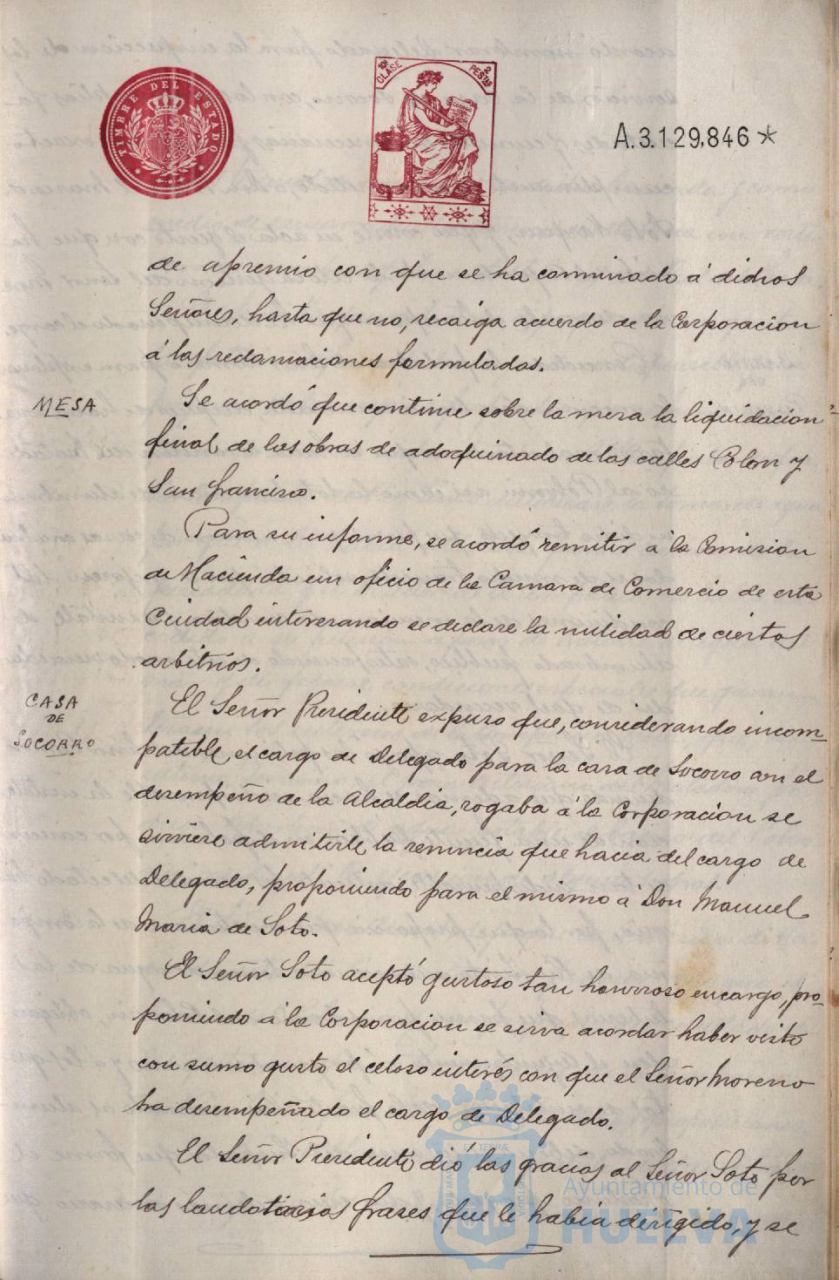 TIMBRE DEL ESTADO
10ª CLASE 2 PESTAS
A.3.129,846*
de apremio con que se ha conminado á dichos
Señores, hasta que no, recaiga acuerdo de la Corporacion
á las reclamaciones formuladas.
MESA
Se acordó que continue sobre la mesa la liquidacion
final de las obras de adoquinado de las calles Colon y
San Francisco.
Para su informe, se acordó remitir á la Comision
de Hacienda un oficio de la Camara de Comercio de esta
Ciudad interesando se declare la nulidad de ciertos
arbitrios.
CASA
DE
SOCORRO
El Señor Presidente expuso que, considerando incom-
patible el cargo de Delegado para la casa de Socorro con el
desempeño de la Alcaldia, rogaba á la Corporacion se
sirviese admitirle la renuncia que hacia del cargo de
Delegado, proponiendo para el mismo á Don Manuel
Maria de Soto.
El Señor Soto aceptó gustoso tan honroso encargo, pro-
poniendo á la Corporacion se sirva acordar haber visto
con sumo gusto el celoso interés con que el Señor Moreno
ha desempeñado el cargo de Delegado.
El Señor Presidente dió las gracias al Señor Soto por
las laudatorias frases que le habia dirigido, y se
Ayuntamiento de
HUELVA